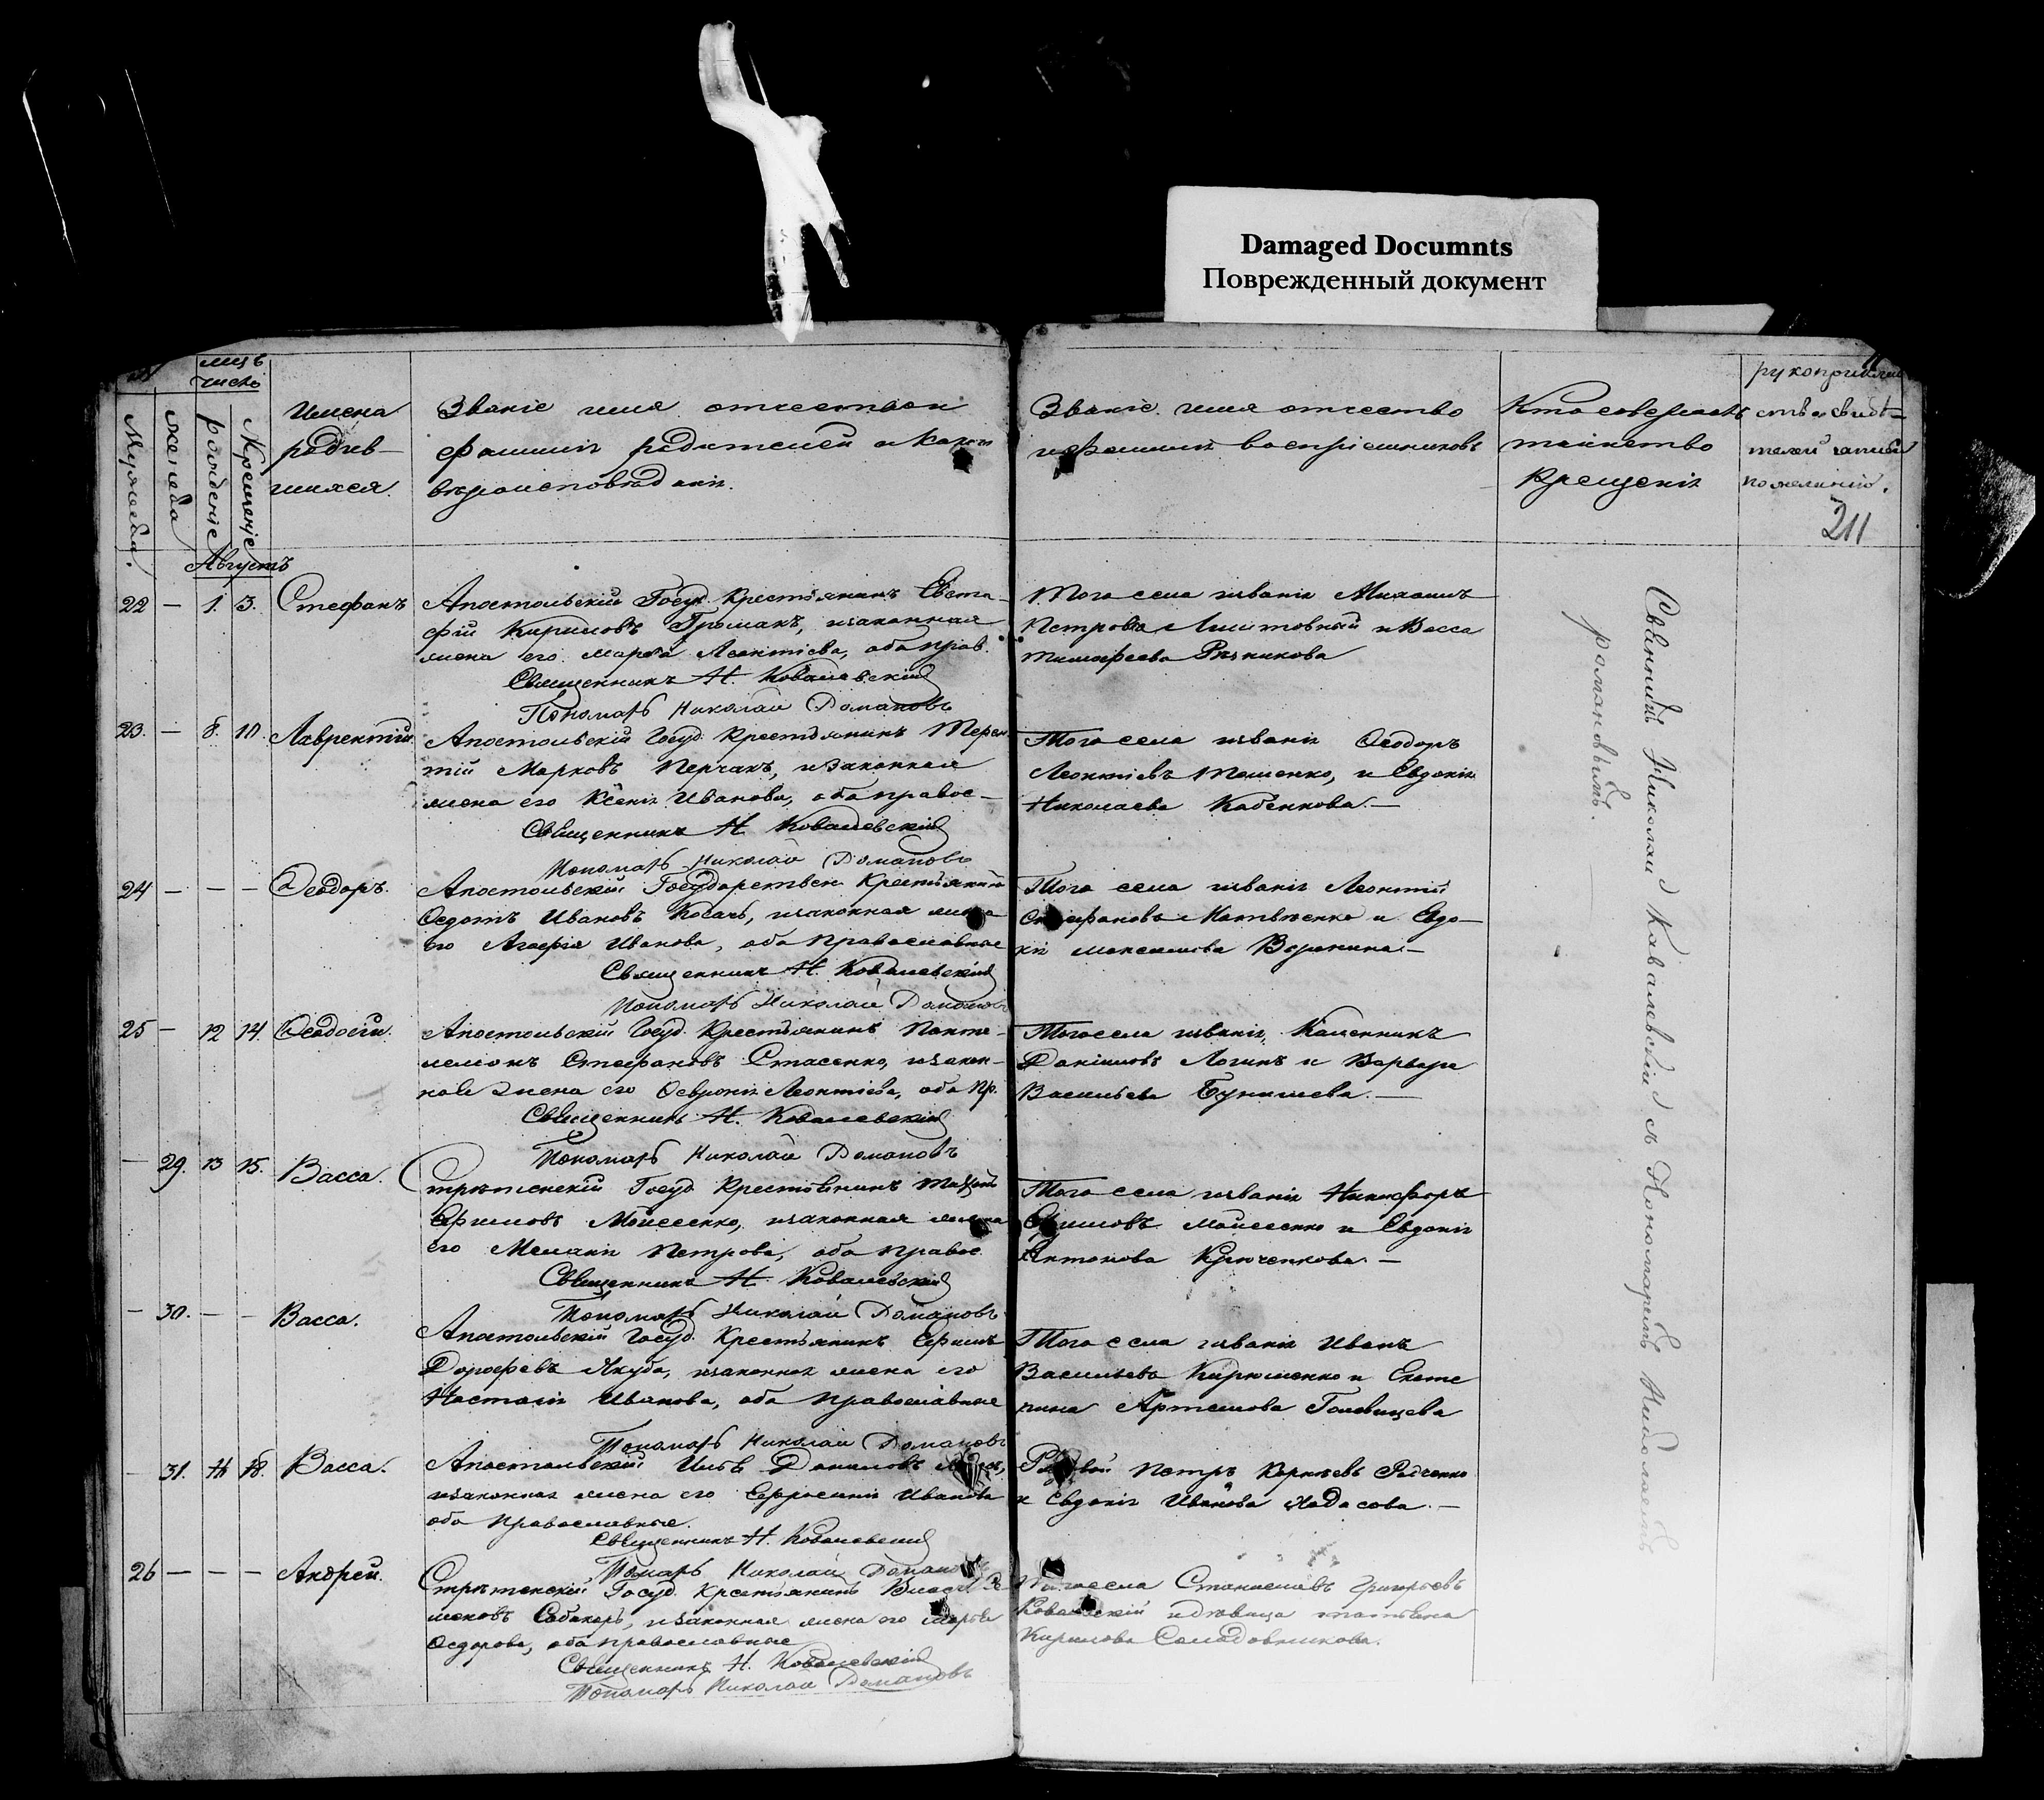 Damaged Documnts
Поврежденный документ
мцъ
число
Мужеска.
женска
рожденіе
Крещеніе
Имена
родив-
шихся.
Званіе имя отчество и
фамилія родителей и какого
вѣроисповѣданія.
Званіе имя отчество
и фамилія воспріемниковъ
Кто совершалъ
таинство
Крещенія
рукоприклад
ство свидѣ-
телей записи
по желанію.
211
Августъ
22 — 1. 3. Стефанъ
Апостольскій Госуд. Крестьянинъ Евста-
фій Кириловъ Громакъ, изаконная
жена его Марфа Леонтіева, оба прав.
Священникъ Н. Ковалевскій
Пономарь Николай Домановъ
Того села званія Михаилъ
Петровъ Лиштовный и Васса
Тимофеева Рѣзникова
23. — 8. 10. Лаврентій
Апостольскій Госуд. Крестьянинъ Терен
тій Марковъ Перчакъ, изаконная
жена его Ксенія Иванова, оба правос—
Священникъ Н. Ковалевскій
Пономарь Николай Домановъ
Того села званія Ѳеодоръ
Леонтіевъ Тешенко, и Евдокія
Николаева Кабенкова.—
24 — — — Ѳеодоръ.
Апостольскій Государствен Крестьянинъ
Ѳедотъ Ивановъ Косачъ, изаконная жена
его Агафія Иванова, оба православные
Священникъ Н. Ковалевскій
Пономарь Николай Домановъ
Того села званія Леонтій
Стефановъ Матвѣенко и Евдо-
кія Максимова Воронина.—
25 — 12 14. Ѳеодосій.
Апостольскій Госуд. Крестьянинъ Панте-
леимонъ Стефановъ Стасенко, изакон-
ная жена его Ѳевронія Леонтіева, оба пр.
Священникъ Н. Ковалевскій
Пономарь Николай Домановъ
Того села званія,
Даніиловъ Логинъ и Варвара
Васильева Бунишева.—
— 29. 13 15. Васса.
Стрѣтенскій Госуд. Крестьянинъ
Ефимовъ Моисеенко, изаконная жена
его Меланія Петрова, оба правос.
Священникъ Н. Ковалевскій
Пономарь Николай Домановъ
Того села званія Никифоръ
Ефимовъ Моисеенко и Евдокія
Антонова Крюченкова.—
— 30. — — Васса.
Апостольскій Госуд. Крестьянинъ Ефимъ
Дорофеевъ Якуба, изаконная жена его
Настасія Иванова, оба православные
Пономарь Николай Домановъ
Того села званія Иванъ
Васильевъ Кирюшенко и Екате
рина Артемова Голевищева
— 31. 18. Васса.
Апостольскій Илья Даниловъ
изаконная жена его Ефросинія Иванова
оба православные.
Священникъ Н. Ковалевскій
Пономарь Николай Домановъ
Петръ Корнѣевъ Радченко
и Евдокія Иванова Ладасова.—
26 — — — Андрей.
Стрѣтенскій Госуд. Крестьянинъ
Собакарь, изаконная жена его Марфа
Ѳедорова, оба православные
Священникъ Н. Ковалевскій
Пономарь Николай Домановъ
Того села Станиславъ Григорьевъ
Ковалевскій и дѣвица Татьяна
Кирилова Солодовникова.
Свѧщенникъ Николай Ковалевскій съ Пономаремъ Николаемъ
романовымъ.